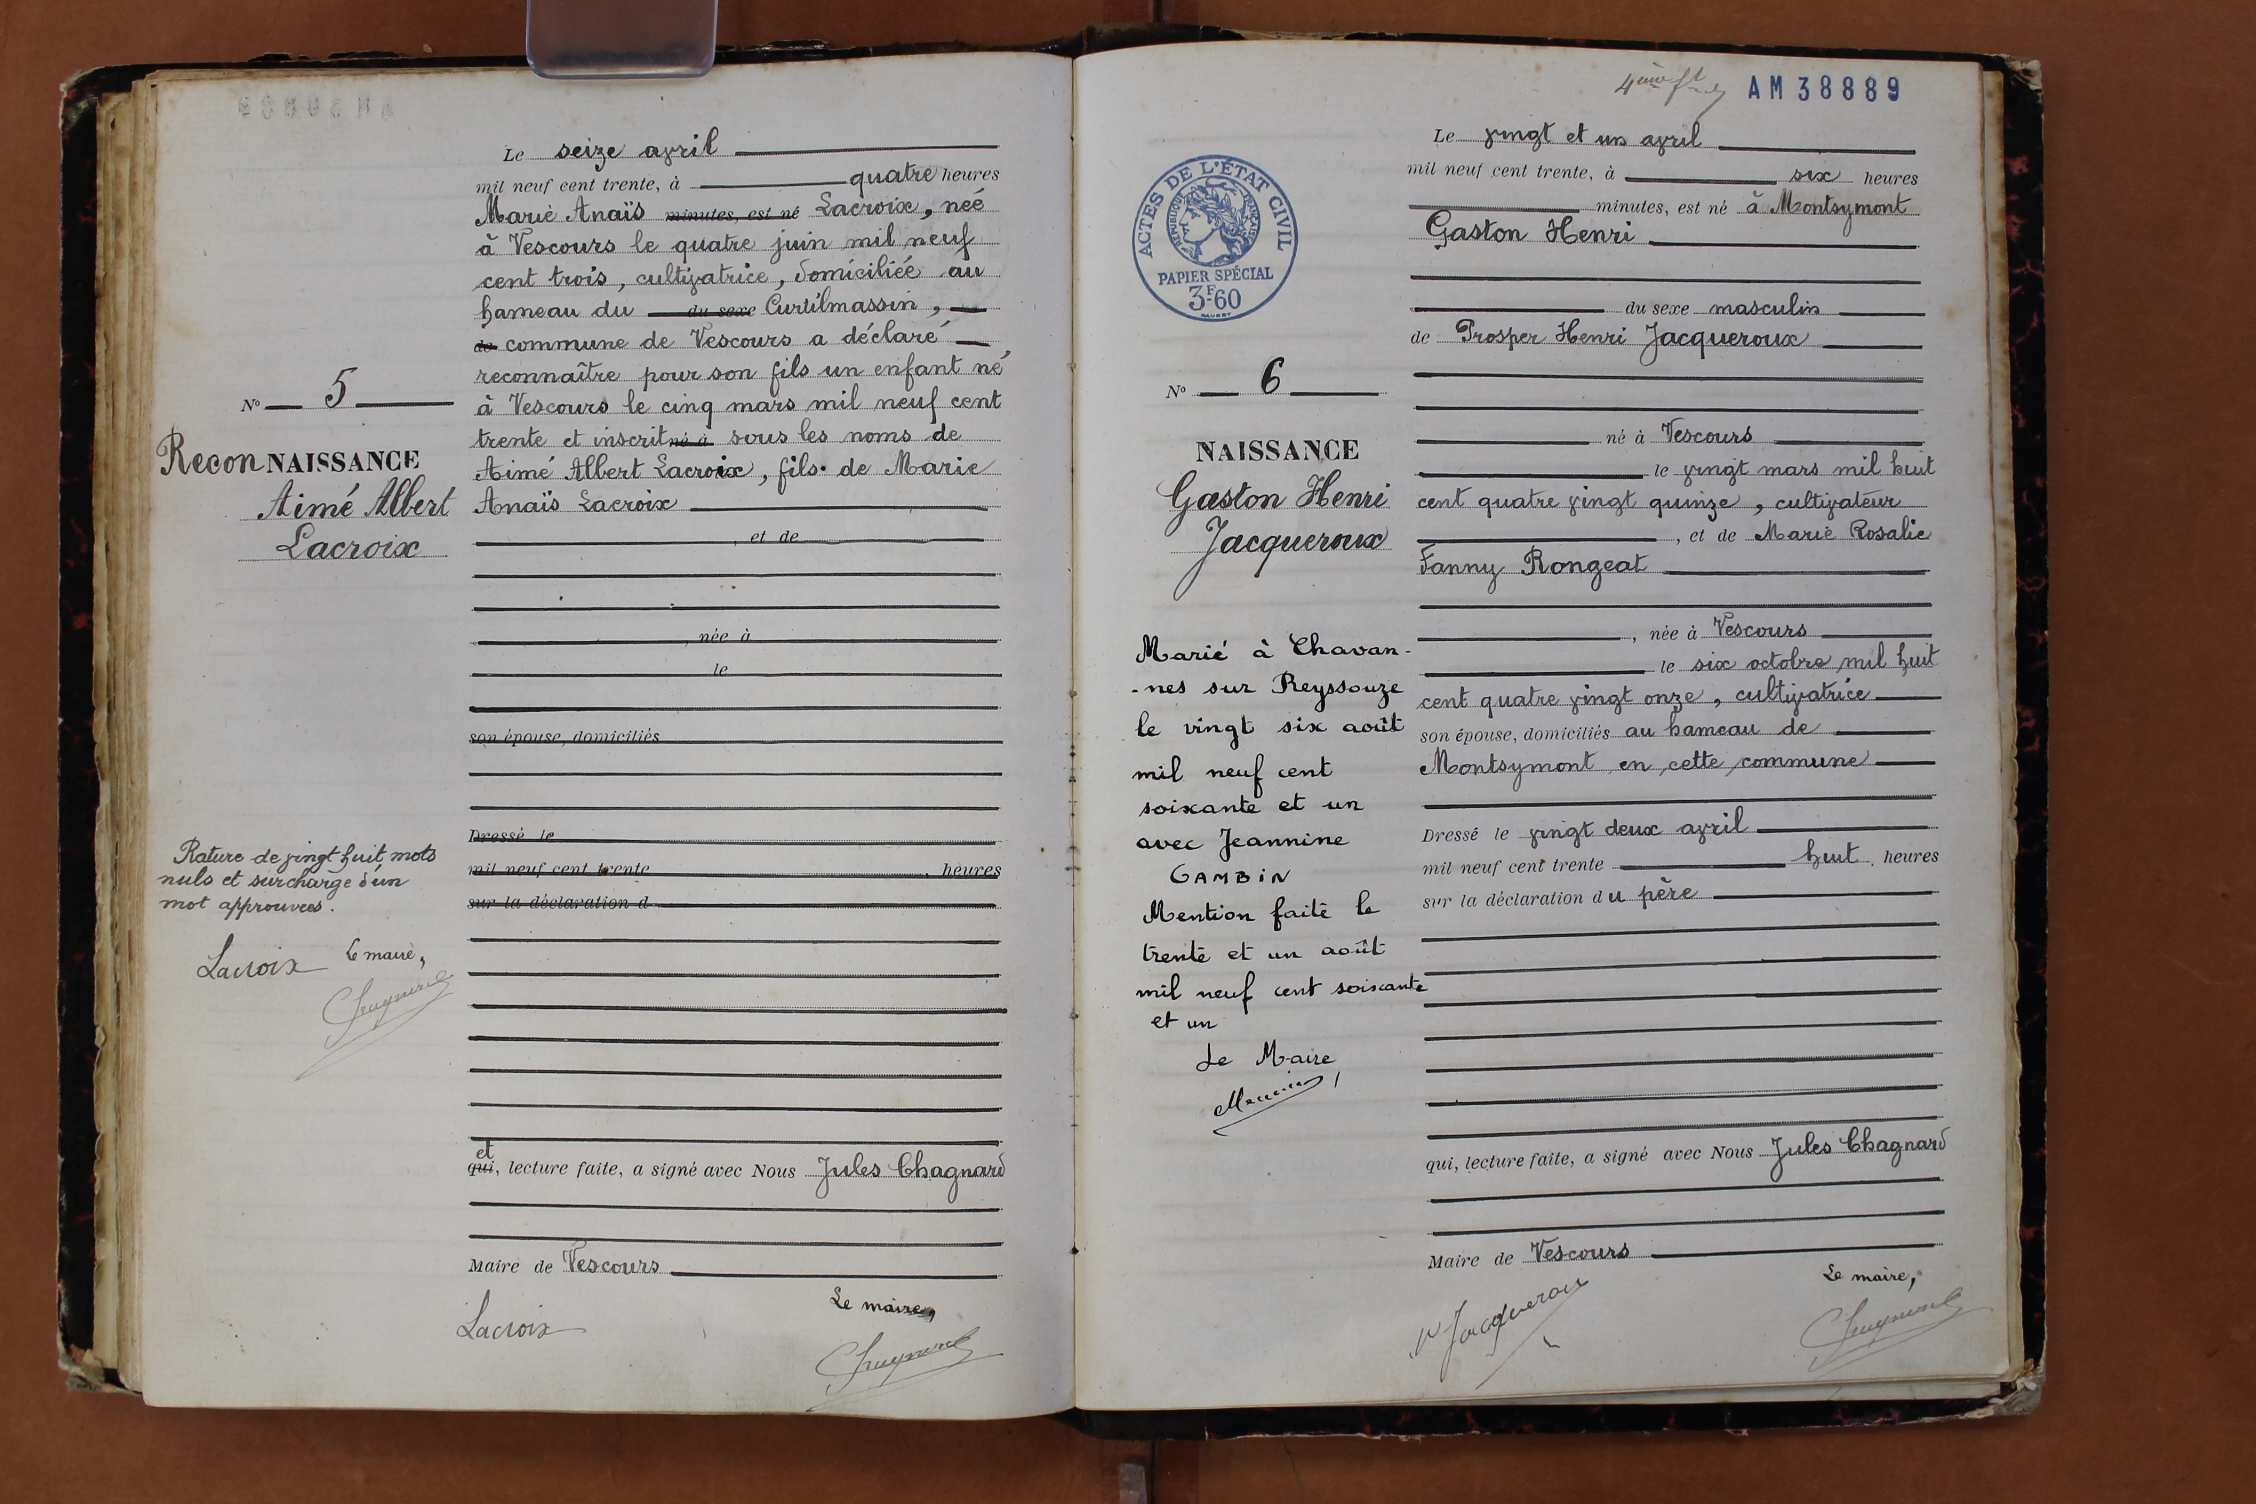 Le seize avril
mil neuf cent trente, à quatre heures
Marie Anaïs minutes, est né Lacroix, née
à Vescours le quatre juin mil neuf
cent trois, cultivatrice, domiciliée au
hameau du du sexe Curtilmassin,
de commune de Vescours a déclaré
reconnaître pour son fils un enfant né
à Vescours le cinq mars mil neuf cent
trente et inscrit né à sous les noms de
Aimé Albert Lacroix, fils de Marie
Anaïs Lacroix
, et de
, née à
le
son épouse, domiciliés
Dressé le
mil neuf cent trente , heures
sur la déclaration d
et
qui, lecture faite, a signé avec Nous Jules Chagnard
Maire de Vescours
Le maire,
Lacroix
Chagnard
No 5
ReconNAISSANCE
Aimé Albert
Lacroix
Rature de vingt huit mots
nuls et surcharge d'un
mot approuvées.
Lacroix Le maire,
Chagnard
4ème ft
AM38889
ACTES DE L'ÉTAT CIVIL
RÉPUBLIQUE FRANÇAISE
PAPIER SPÉCIAL
3F.60
No 6
NAISSANCE
Gaston Henri
Jacqueroux
Marié à Chavan-
-nes sur Reyssouze
le vingt six août
mil neuf cent
soixante et un
avec Jeannine
GAMBIN
Mention faite le
trente et un août
mil neuf cent soixante
et un
Le Maire
Le vingt et un avril
mil neuf cent trente, à six heures
minutes, est né à Montsymont
Gaston Henri
du sexe masculin
de Prosper Henri Jacqueroux
né à Vescours
le vingt mars mil huit
cent quatre vingt quinze, cultivateur
, et de Marie Rosalie
Fanny Rongeat
, née à Vescours
le six octobre mil huit
cent quatre vingt onze, cultivatrice
son épouse, domiciliés au hameau de
Montsymont en cette commune
Dressé le vingt deux avril
mil neuf cent trente huit, heures
sur la déclaration du père
qui, lecture faite, a signé avec Nous Jules Chagnard
Maire de Vescours
Le maire,
Jacqueroux
Chagnard